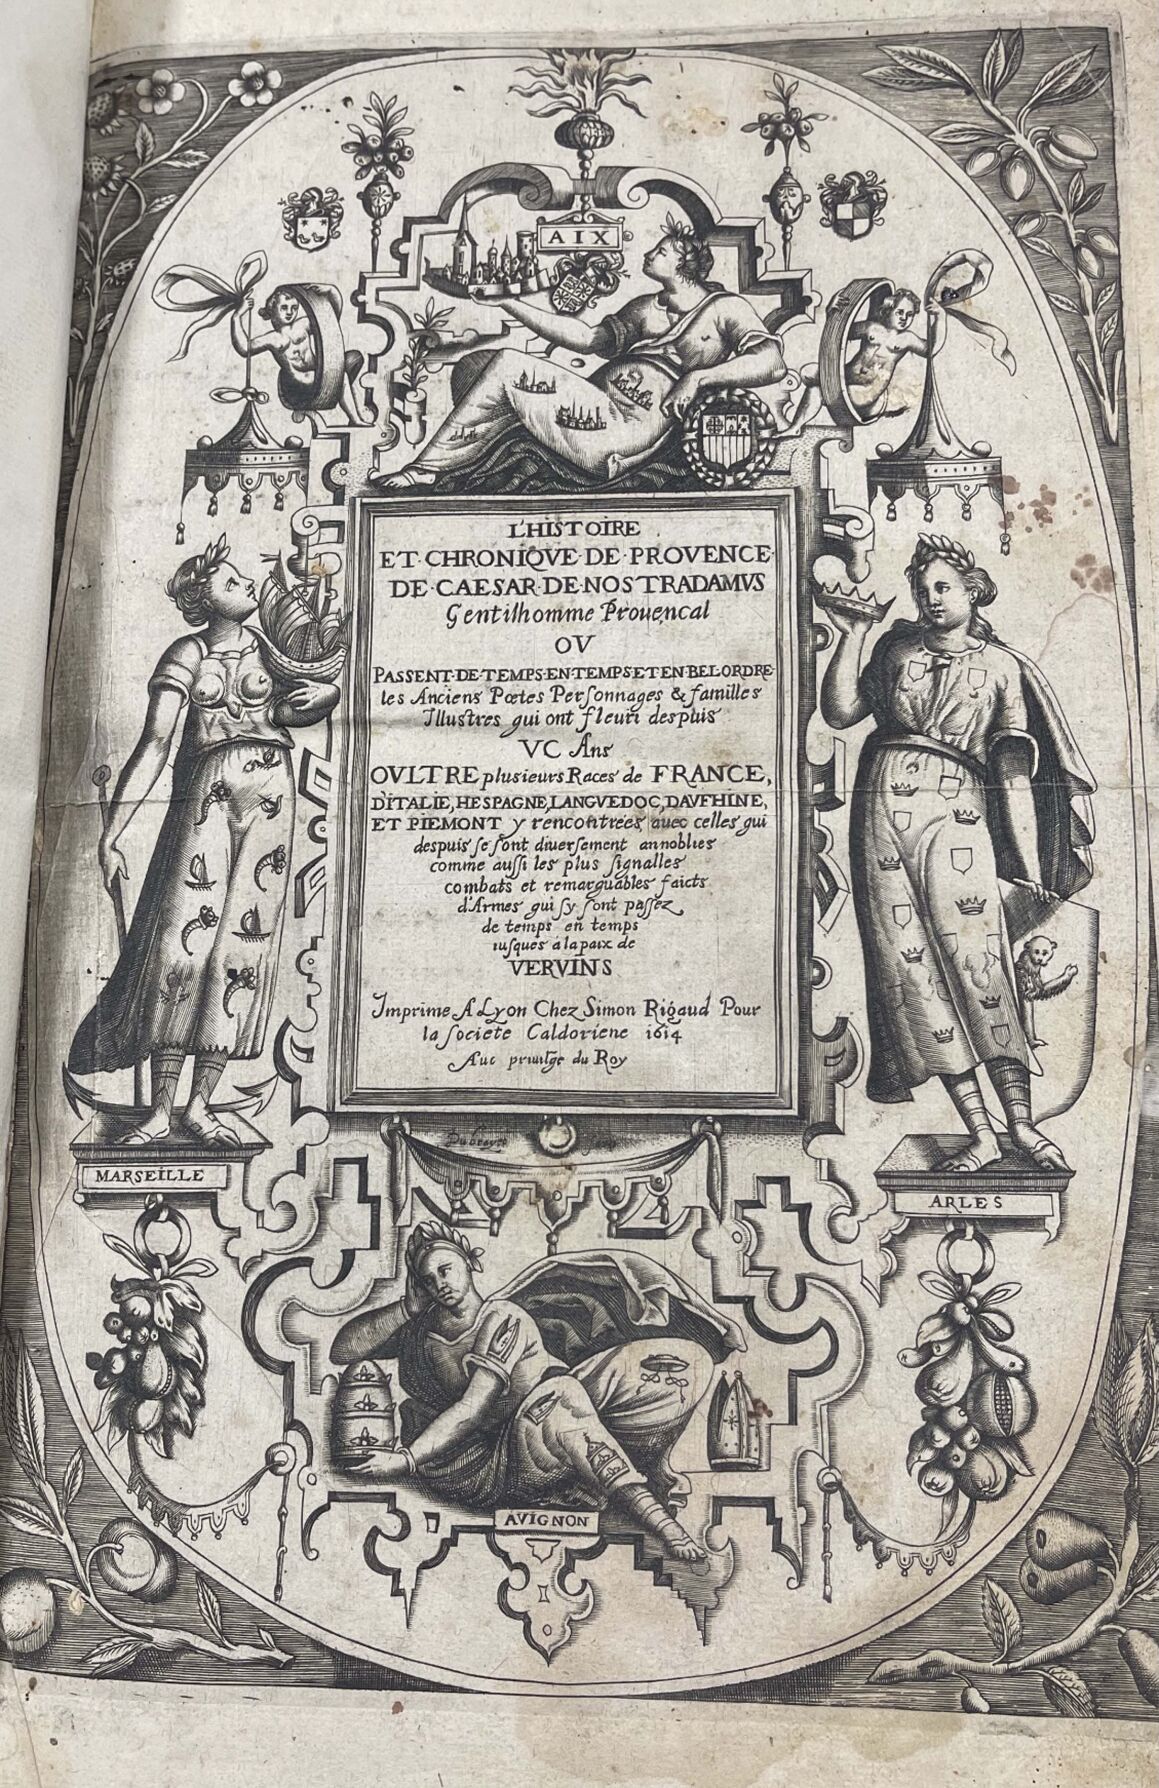 AIX
L'HISTOIRE
ET·CHRONIQVE·DE·PROVENCE
DE·CAESAR·DE·NOSTRADAMVS
Gentilhomme Prouençal
OV
PASSENT·DE·TEMPS·EN·TEMPS·ET·EN·BEL·ORDRE
les Anciens Pœtes Perſonnages & familles
Illustres qui ont fleuri despuis
VC Ans
OVLTRE plusieurs Races de FRANCE,
D'ITALIE, HESPAGNE, LANGVEDOC, DAVFHINE,
ET PIEMONT y rencontrées auec celles qui
despuis ſe ſont diuersement annoblies
comme auſſi les plus ſignalles
combats et remarquables faicts
d'Armes qui ſy ſont paſſez
de temps en temps
iusques à la paix de
VERVINS
Imprime A Lyon Chez Simon Rigaud Pour
la ſociete Caldoriene 1614
Auc priuilge du Roy
MARSEILLE
ARLES
AVIGNON